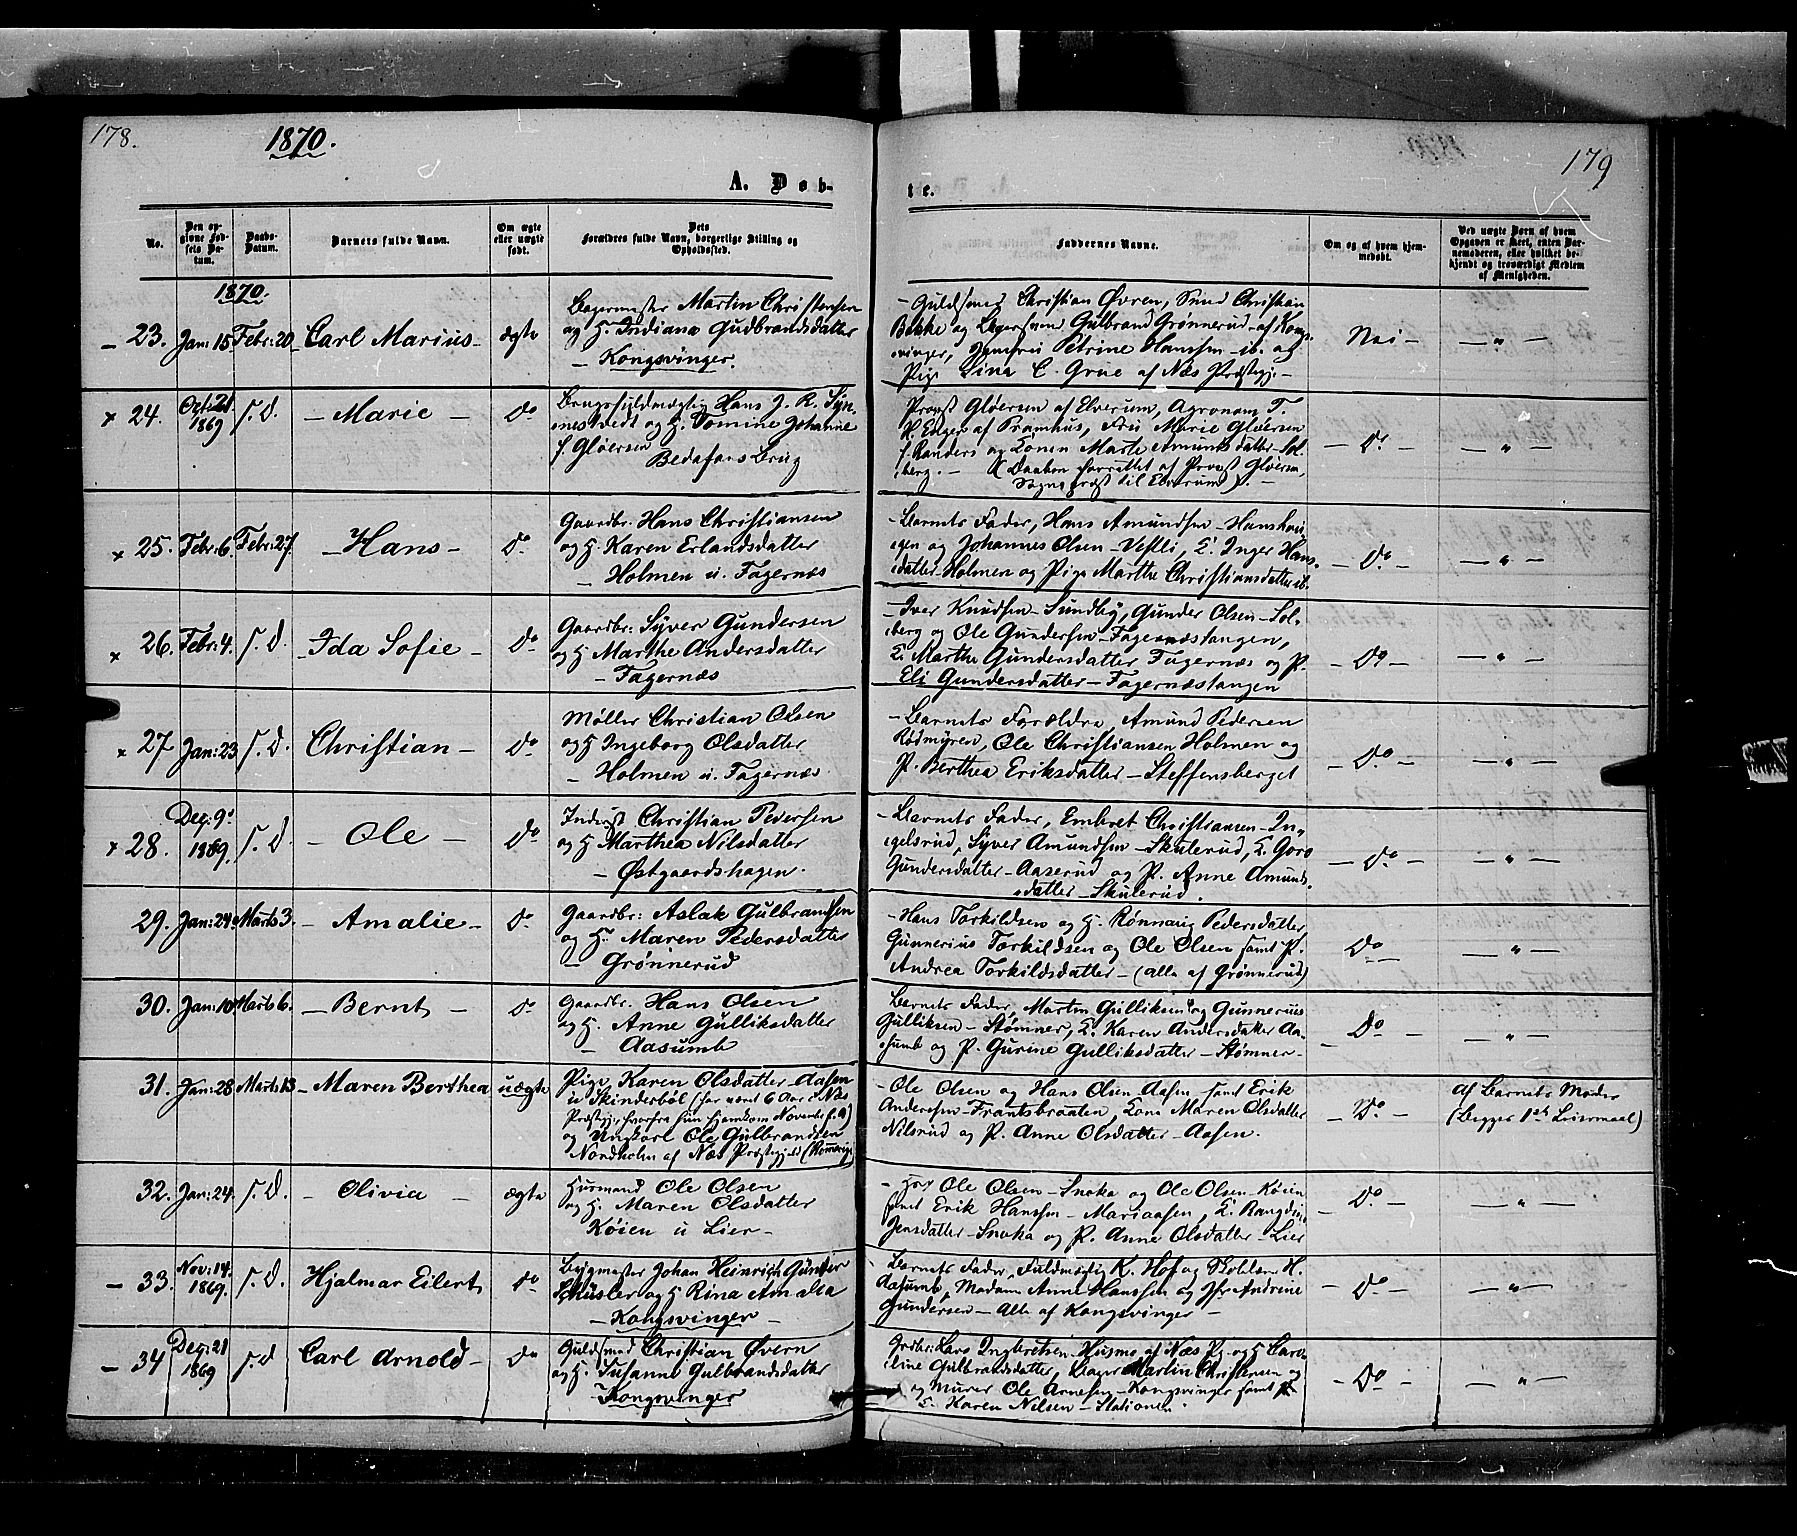 178.
1870.
A. Døb-
No.
Den op-
givne Fød-
sels Da-
tum.
Daabs-
Datum.
Barnets fulde Navn.
Om ægte
eller uægte
født.
Dets
Forældres fulde Navn, borgerlige Stilling og
Opholdssted.
1870.
– 23. Jan: 15 Febr: 20 Carl Marius – ægte
Bagermester Martin Christensen
og H. Indiana Gudbrandsdatter
– Kongsvinger.
x 24. Oct: 21 1869 s. D. – Marie – Do
Brugsfuldmægtig Hans J. R. Syn-
nestvedt og H. Tomine Johanne
f. Gløersen
Bedafors Brug
x 25. Febr: 6. Febr: 27 – Hans – Do
Gaardbr. Hans Christiansen
og H. Karen Erlandsdatter
– Holmen u. Fagernæs
x 26. Febr: 4. s. D. – Ida Sofie – Do
Gaardbr: Syver Gundersen
og H. Marthe Andersdatter
– Fagernæs
x 27 Jan: 23 s. D. Christian – Do
Møller Christian Olsen
og H Ingeborg Olsdatter
– Holmen u. Fagernæs.
x 28. Dec: 9 1869. s. D – Ole – Do
Inderst Christian Pedersen
og H Marthea Nilsdatter
– Østgaardshagen.
29. Jan: 24 Marts 3. – Amalie – Do
Gaardbr: Aslak Gulbrandsen
og H. Maren Pedersdatter
– Grønnerud
30. Jan: 10 Marts 6. – Bernt – Do
Gaardbr. Hans Olsen
og H. Anne Gulliksdatter
– Aasumb
31. Jan: 28 Marts 13 – Maren Berthea uægte
Pige Karen Olsdatter – Aasen
u Skinderböl (har været 6 Aar i Næs
Præstegj: hvorfra hun hjemkom Novembr f. A)
og Ungkarl Ole Gulbrandsen
Nordholn af Næs Præstegjeld (Romerige)
32. Jan: 24. s. D. – Olivia – ægte
Husmand Ole Olsen
og H. Maren Olsdatter
Køien u Lier –
– 33. Nov: 14. 1869. s. D. Hjalmar Eilert Do
Bygmester Johan Heinrich Günter
Schüsler og H Rina Amalea
– Kongsvinger –
– 34 Dec: 21 1869 s. D Carl Arnold – Do
Guldsmed Christian Øvern
og H. Susanne Gulbrandsdatter
Kongsvinger
179
te.
Faddernes Navne.
Om og af hvem hjem-
medøbt.
Ved uægte Børn af hvem
Opgaven er skeet, enten Bar-
nemoderen, eller hvilket be-
kjendt og troværdigt Medlem
af Menigheden.
– Guldsmed Christian Øvren, Smed Christian
Bekke og Bagersvend Gulbrand Grønnerud af Kongs-
vinger, Jomfru Petrine Hanssen – ib. og
Pige Lina C. Grue af Næs Præstegj. –
Nei –
– " –
Provst Gløersen af Elverum, Agronom T.
R. Enger af Pramhus, Fru Marie Gløersen
f. Randers og Konen Marte Amundsdatter – Sol-
berg. – (Daaben forrettet af Provst Gløersen,
Sognepræst til Elverum). –
– Do –
– " –
– Barnets Fader, Hans Amundsen – Hanshau-
gen og Johannes Olsen – Vestli, K. Inger Hans-
datter – Holmen og Pige Marthe Christiansdatter ib.
– Do –
– " –
– Iver Knudsen – Sundby, Gunder Olsen – Sol-
berg og Ole Gundersen – Fagernæstangen,
K. Marthe Gundersdatter Fagernæs og P.
Eli Gundersdatter – Fagernæstangen
– Do –
– " –
– Barnets Forældre, Amund Pedersen
Rødmyren, Ole Christiansen Holmen og
P. Berthea Eriksdatter – Steffensberget
– Do –
– " –
– Barnets Fader, Embret Christiansen – In-
gelsrud, Syver Amundsen – Skulerud, K. Goro
Gundersdatter – Aaserud og P. Anne Amunds-
datter – Skulerud.
– Do –
– " –
– Hans Torkildsen og H. Rønnaug Pedersdatter
Gunnerius Torkildsen og Ole Olsen samt P.
Andrea Torkildsdatter – (alle af Grønnerud)
Do –
– " –
Barnets Fader, Martin Gulliksen og Gunnerius
Gulliksen – Stømner, K. Karen Andersdatter Aa-
sumb og P. Gurine Gulliksdatter – Stømner –
– Do –
– " –
– Ole Olsen og Hans Olsen – Aasen samt Erik
Andersen – Frantsbraaten, Kone Maren Olsdatter
Nilsrud og P. Anne Olsdatter – Aasen.
– Do –
af Barnets Moder
(Begges 1ste Leiermaal)
– Ole Olsen – Snoka og Ole Olsen – Køien
samt Erik Hanssen – Mariaasen, K. Rangdi
Jensdatter – Snoka og P. Anne Olsdatter – Lier
– Do –
– " –
– Barnets Fader, Fuldmægtig K. Hof og Skolelærer H.
Aasumb, Madam Anne Hanssen og Jfr Andrine
Gundersen – Alle af Kongsvinger –
– Do –
– " –
Grdbr: Lars Ingbretsen – Husmo af Næs Pg. og H Caro-
line Gulbrandsdatter, Bager Martin Christensen og
og Murer Ole Arnesen – Kongsvinger samt P.
K. Karen Nilsen – Stationen.
– Do –
– " –